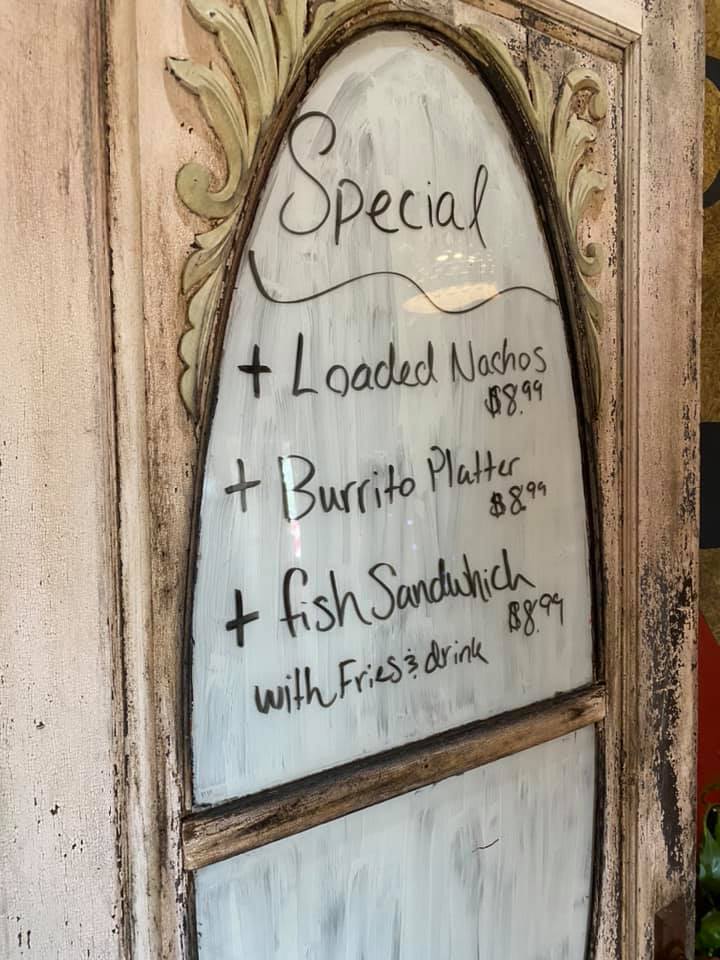 Special
+ Loaded Nachos
$8.99
+ Burrito Platter
$8.99
+ fish Sandwhich
$8.99
with Fries & drink